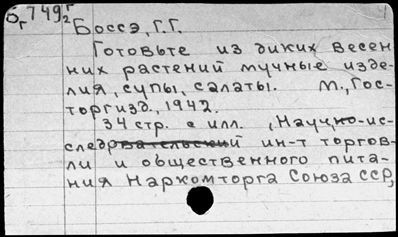 Б 749
г 2
Боссэ, Г.Г.
Готовьте из диких весен
них растений мучные изде-
лия, супы, салаты. М., Гос-
торгизд., 1942.
34 стр. с илл. (Науч.-но-ис-
следовательский ин-т торгов-
ли и общественного пита-
ния Наркомторга Союза ССР,